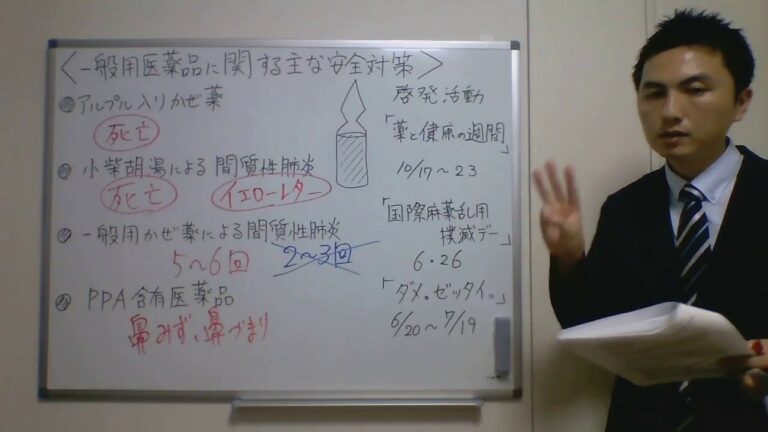 〈一般用医薬品に関する主な安全対策〉
アルプル入りかぜ薬
死亡
小柴胡湯による間質性肺炎
死亡 イエローレター
一般用かぜ薬による間質性肺炎
5〜6回 2〜3回
PPA含有医薬品
鼻みず、鼻づまり
啓発活動
「薬と健康の週間」
10/17〜23
「国際麻薬乱用
撲滅デー」
6・26
「ダメ。ゼッタイ。」
6/20〜7/19